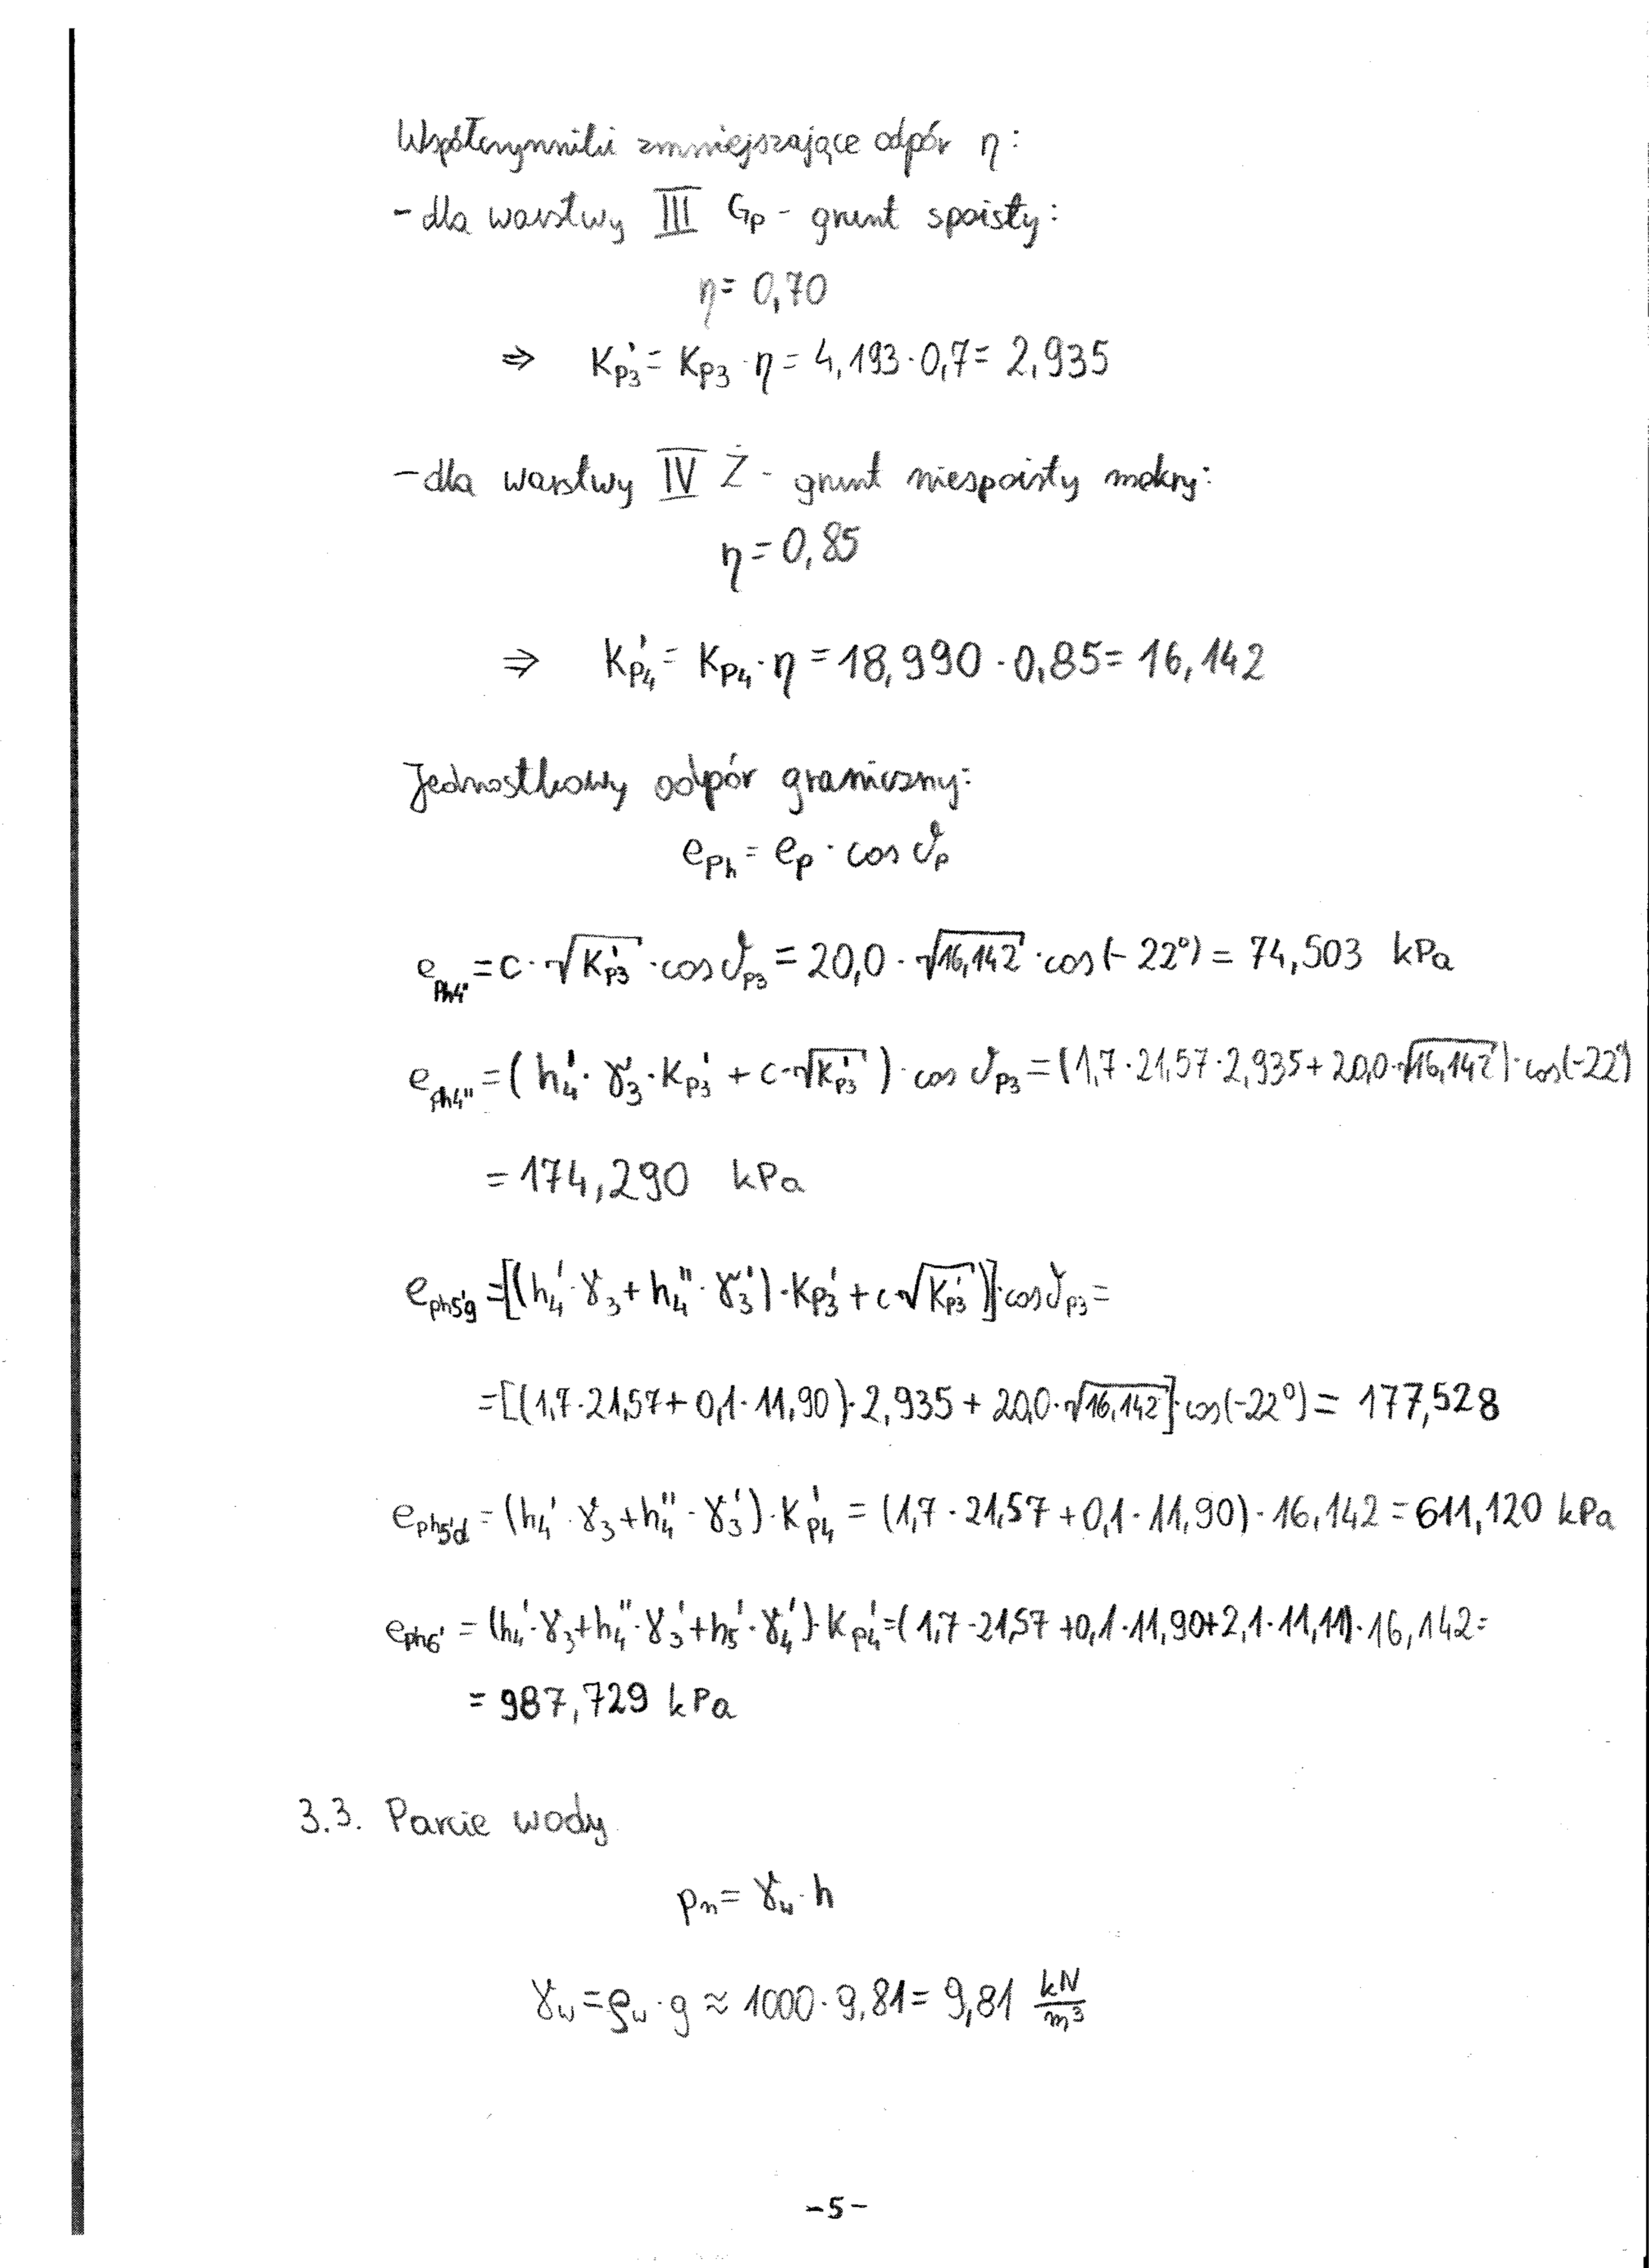 Współczynniki zmniejszające odpór η:
- dla warstwy III Gp - grunt spoisty:
η = 0,70
⇒ Kp3' = Kp3 · η = 4,193 · 0,7 = 2,935
- dla warstwy IV Ż - grunt niespoisty mokry:
η = 0,85
⇒ Kp4' = Kp4 · η = 18,990 · 0,85 = 16,142
Jednostkowy odpór graniczny:
eph = ep · cos δp
eph4' = c · √Kp3' · cos δp3 = 20,0 · √16,142 · cos(-22°) = 74,503 kPa
eph4'' = (h4' · γ3 · Kp3' + c · √Kp3') · cos δp3 = (1,7 · 21,57 · 2,935 + 20,0 · √16,142) · cos(-22°)
= 174,290 kPa
eph5'g = [(h4' · γ3 + h4'' · γ3') · Kp3' + c √Kp3')] · cos δp3 =
= [(1,7 · 21,57 + 0,1 · 11,90) · 2,935 + 20,0 · √16,142] · cos(-22°) = 177,528
eph5'd = (h4' · γ3 + h4'' · γ3') · Kp4' = (1,7 · 21,57 + 0,1 · 11,90) · 16,142 = 611,120 kPa
eph6' = (h4' · γ3 + h4'' · γ3' + h5' · γ4') · Kp4' = (1,7 · 21,57 + 0,1 · 11,90 + 2,1 · 11,11) · 16,142 =
= 987,729 kPa
3.3. Parcie wody
pn = γw · h
γw = ρw · g ≈ 1000 · 9,81 = 9,81 kN/m³
-5-